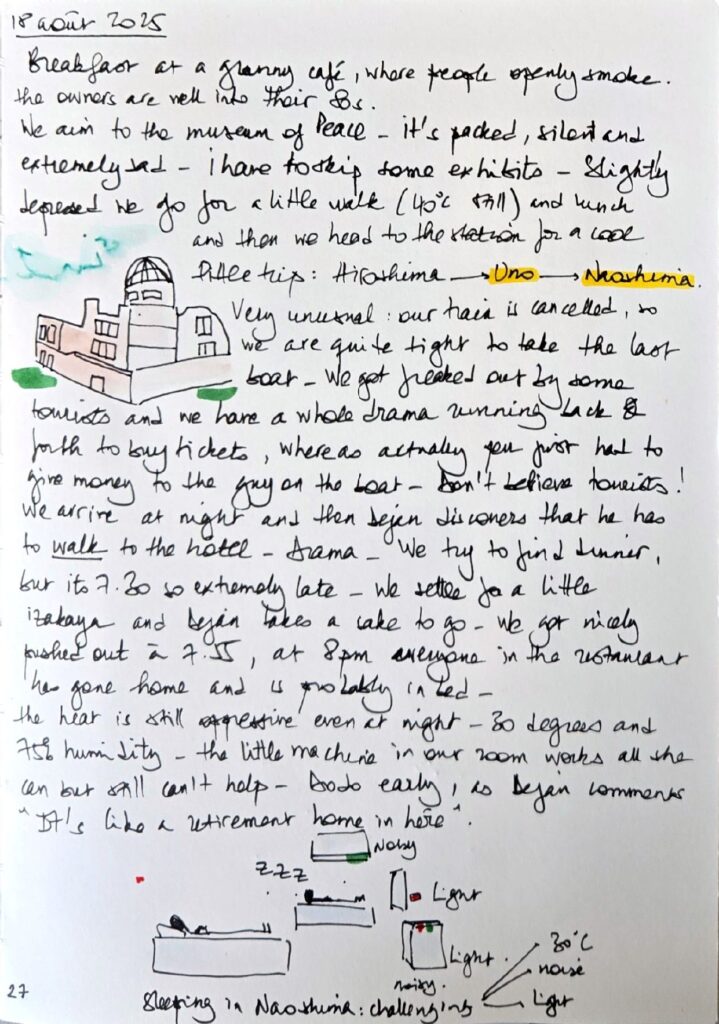 18 août 2025
Breakfast at a granny café, where people openly smoke.
the owners are well into their 80s.
We aim to the museum of Peace - it's packed, silent and
extremely sad - i have to skip some exhibits - Slightly
depressed we go for a little walk (40°C still) and lunch
and then we head to the station for a cool
little trip: Hiroshima → Uno → Naoshima.
Very unusual: our train is cancelled, so
we are quite tight to take the last
boat - We got freaked out by some
tourists and we have a whole drama running back &
forth to buy tickets, whereas actually you just had to
give money to the guy on the boat - Don't believe tourists!
We arrive at night and then Dejan discovers that he has
to walk to the hotel - Drama - We try to find dinner,
but its 7.30 so extremely late - We settle for a little
izakaya and Dejan takes a cake to go - We got nicely
pushed out à 7.55, at 8pm everyone in the restaurant
has gone home and is probably in bed -
the heat is still oppressive even at night - 30 degrees and
75% humidity - the little machine in our room works all she
can but still can't help - Dodo early, as Dejan comments
"It's like a retirement home in here".
Noisy
Z Z Z
Light
Light.
noisy.
30°C
noise
Light
Sleeping in Naoshima: challenging
27